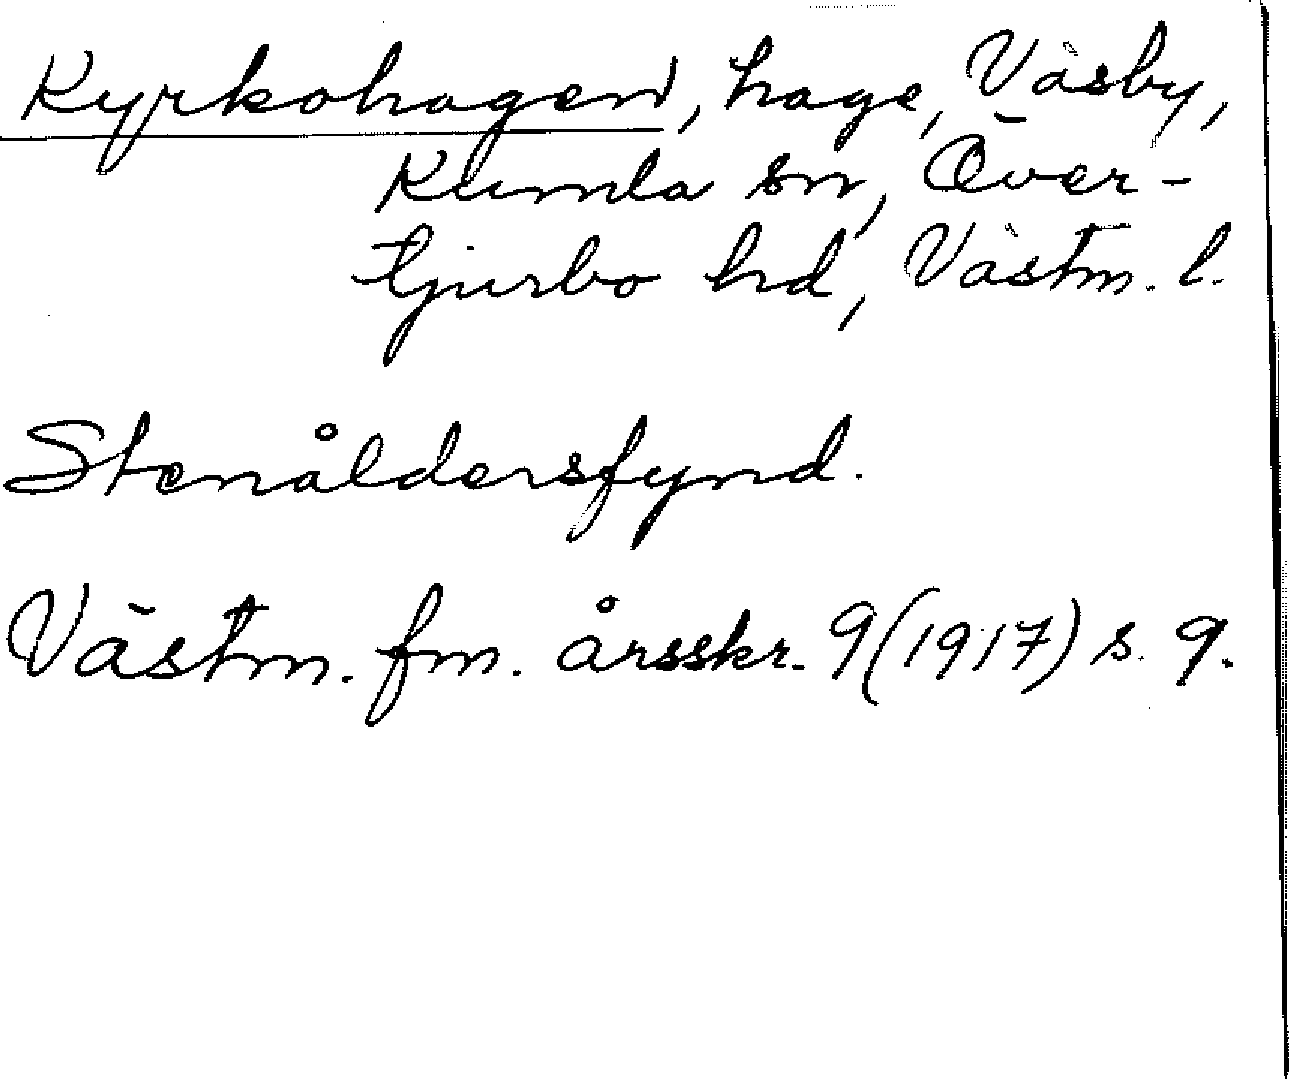 Kyrkohagen, hage, Väsby,
Kumla sn, Över-
tjurbo hd, Västm. l.
Stenåldersfynd.
Västm. fm. årsskr. 9 (1917) s. 9.